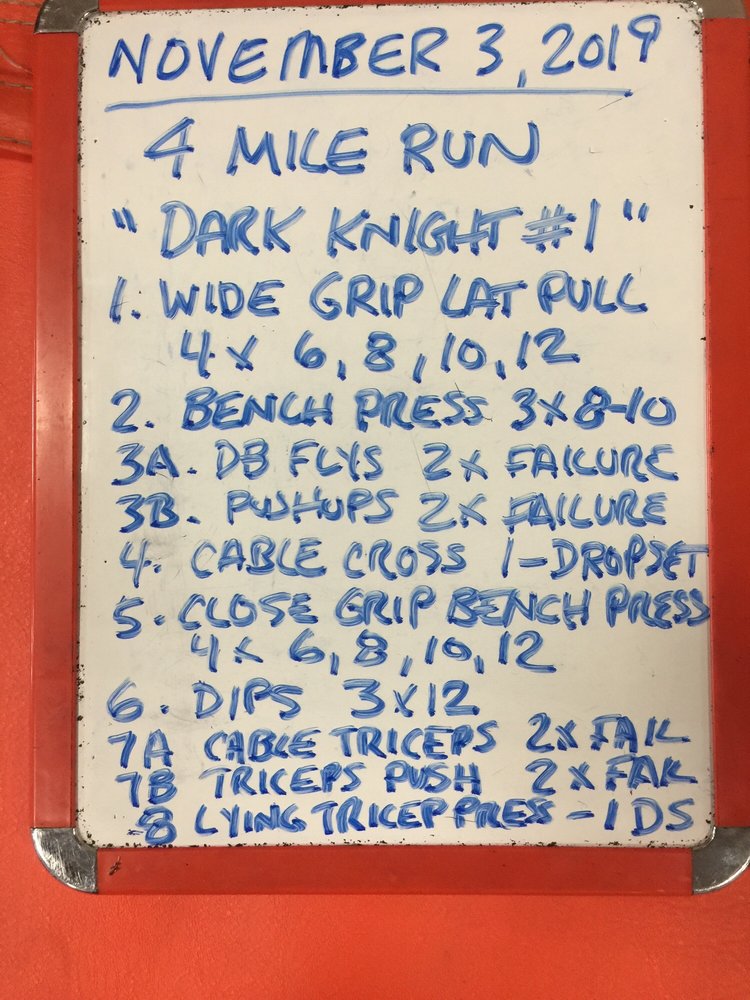 NOVEMBER 3, 2019
4 MILE RUN
"DARK KNIGHT #1"
1. WIDE GRIP LAT PULL
4 x 6, 8, 10, 12
2. BENCH PRESS 3x8-10
3A. DB FLYS 2x FAILURE
3B. PUSHUPS 2x FAILURE
4. CABLE CROSS 1-DROPSET
5. CLOSE GRIP BENCH PRESS
4x 6, 8, 10, 12
6. DIPS 3x12
7A CABLE TRICEPS 2x FAIL
7B TRICEPS PUSH 2x FAIL
8 LYING TRICEP PRESS - 1 DS